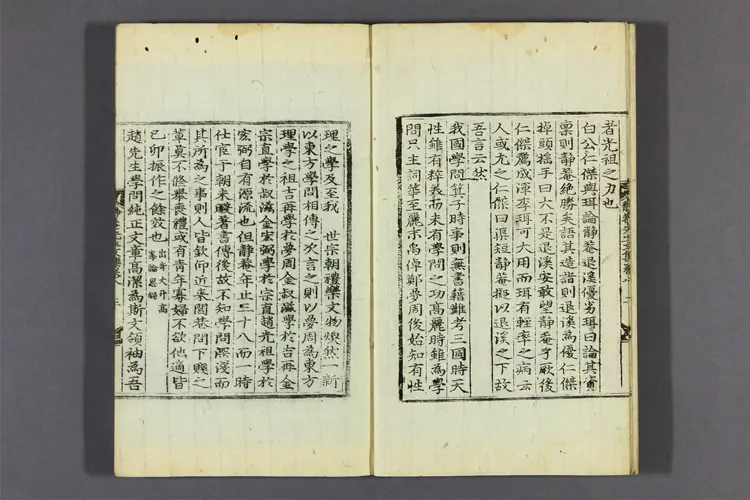 者光祖之力也
白公仁傑與珥論靜菴退溪優劣珥曰論其資
稟則靜菴絶勝矣語其造詣則退溪爲優仁傑
掉頭搖手曰大不是退溪安敢望靜菴乎厥後
仁傑薦成渾李珥可大用而珥有輕率之病云
人或尤之仁傑曰渠短靜菴擬以退溪之下故
吾言云然
我國學問箕子時事則無書籍難考三國時天
性雖有粹羙而未有學問之功高麗時雖爲學
問只主詞華至麗末禹倬鄭夢周後始知有性
理之學及至我 世宗朝禮樂文物煥然一新
以東方學問相傳之次言之則以夢周爲東方
理學之祖吉再學於夢周金叔滋學於吉再金
宗直學於叔滋金宏弼學於宗直趙光祖學於
宏弼自有源流也但靜菴年止三十八而一時
仕宦于朝未暇著書傳後故不知學問深淺而
其所爲之事則人皆欽仰近來閭巷間下賤之
輩莫不修擧喪禮或有青年寡婦不欲他適皆
己卯振作之餘效也 出奇大升高
峯論思録
趙先生學問純正文章高潔爲斯文領袖爲吾